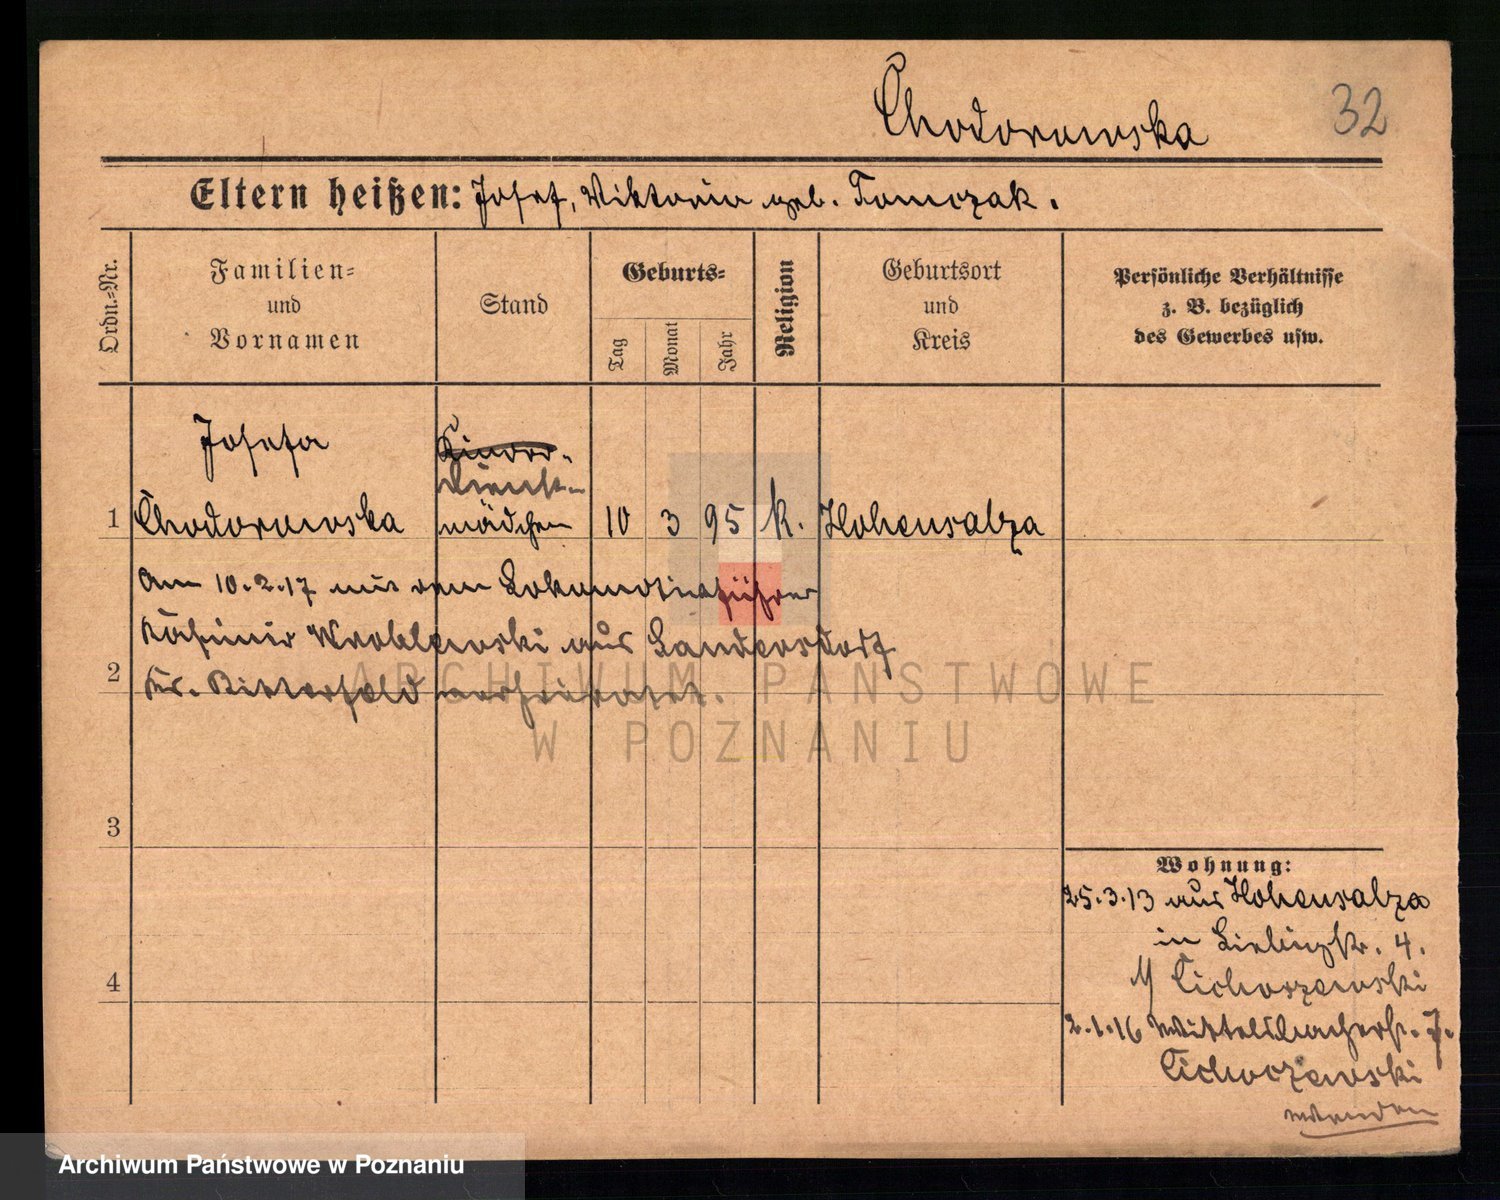 Chodorowska
32
Eltern heißen: Josef, Viktoria geb. Tomczak.
Ordn.-Nr.
Familien-
und
Vornamen
Stand
Geburts-
Tag
Monat
Jahr
Religion
Geburtsort
und
Kreis
Persönliche Verhältnisse
z. B. bezüglich
des Gewerbes usw.
Josefa
Kinder-
Dienst-
1 Chodorowska mädchen 10 3 95 k. Hohensalza
Am 10.2.17 mit dem Lokomotivführer
Kasimir Wroblewski aus Sandersdorf
2
Kr. Bitterfeld verheiratet.
ARCHIWUM PAŃSTWOWE
W POZNANIU
3
4
Wohnung:
25.3.13 aus Hohensalza
in 4.
Cichoszewski
2.1.16 Wittelsbacherstr. 7.
Cichoczewski
wenden
Archiwum Państwowe w Poznaniu